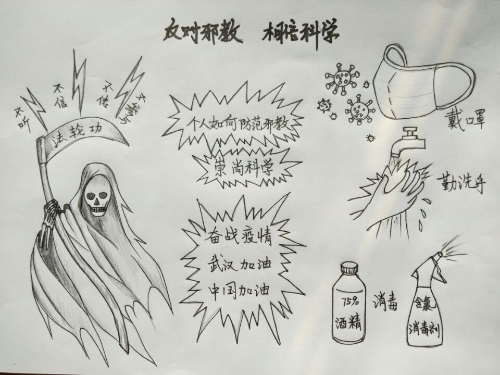 反对邪教 相信科学
不听
不信
不传
法轮功
个人如何防范邪教
崇尚科学
奋战疫情
武汉加油
中国加油
戴口罩
勤洗手
75%
酒精
消毒
含氯
消毒剂